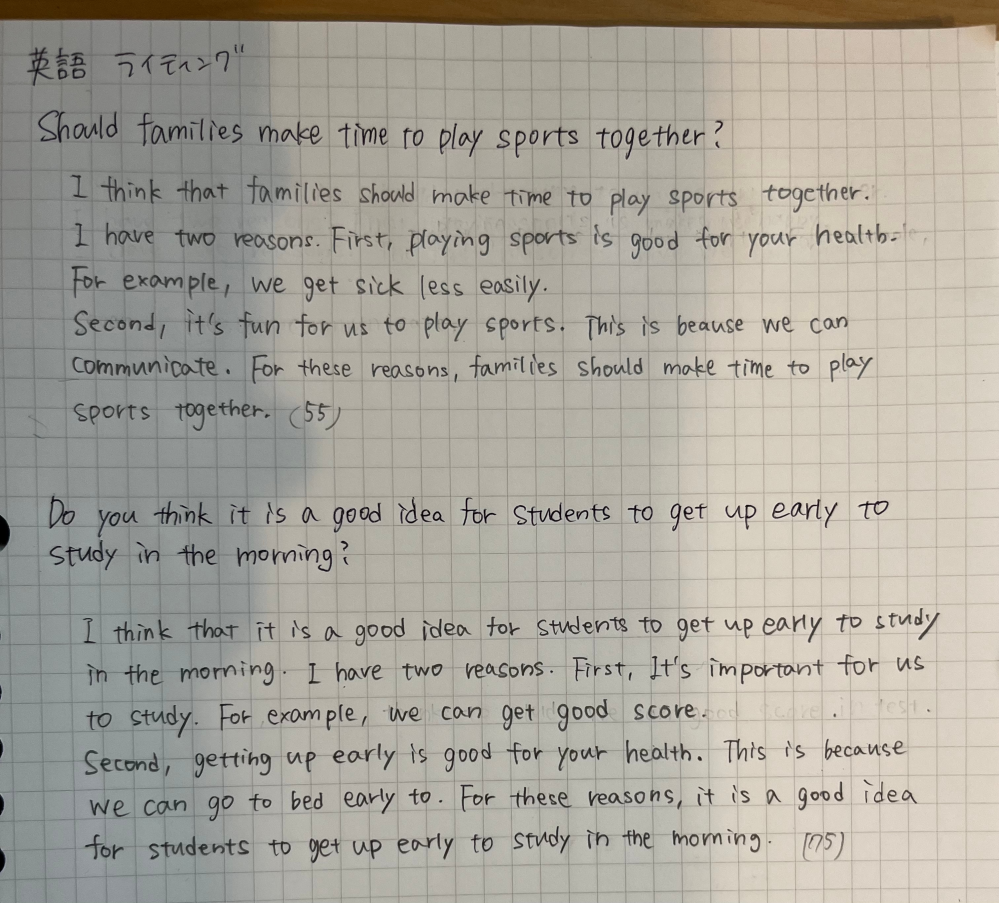 英語 ライティング
Should families make time to play sports together?
I think that families should make time to play sports together.
I have two reasons. First, playing sports is good for your health.
For example, we get sick less easily.
Second, it's fun for us to play sports. This is beause we can
communicate. For these reasons, families should make time to play
sports together. (55)
Do you think it is a good idea for students to get up early to
study in the morning?
I think that it is a good idea for students to get up early to study
in the morning. I have two reasons. First, It's important for us
to study. For example, we can get good score.
Second, getting up early is good for your health. This is because
we can go to bed early to. For these reasons, it is a good idea
for students to get up early to study in the morning. (75)